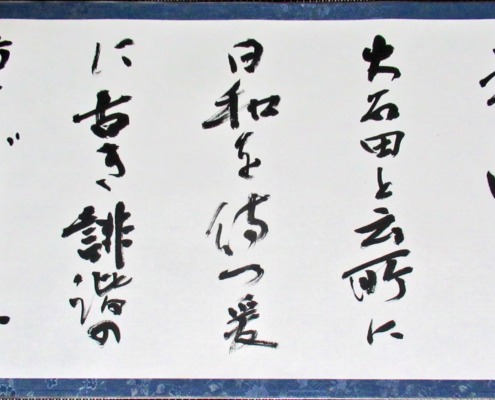 大石田と云所に
日和を待つ爰
に古き誹諧の